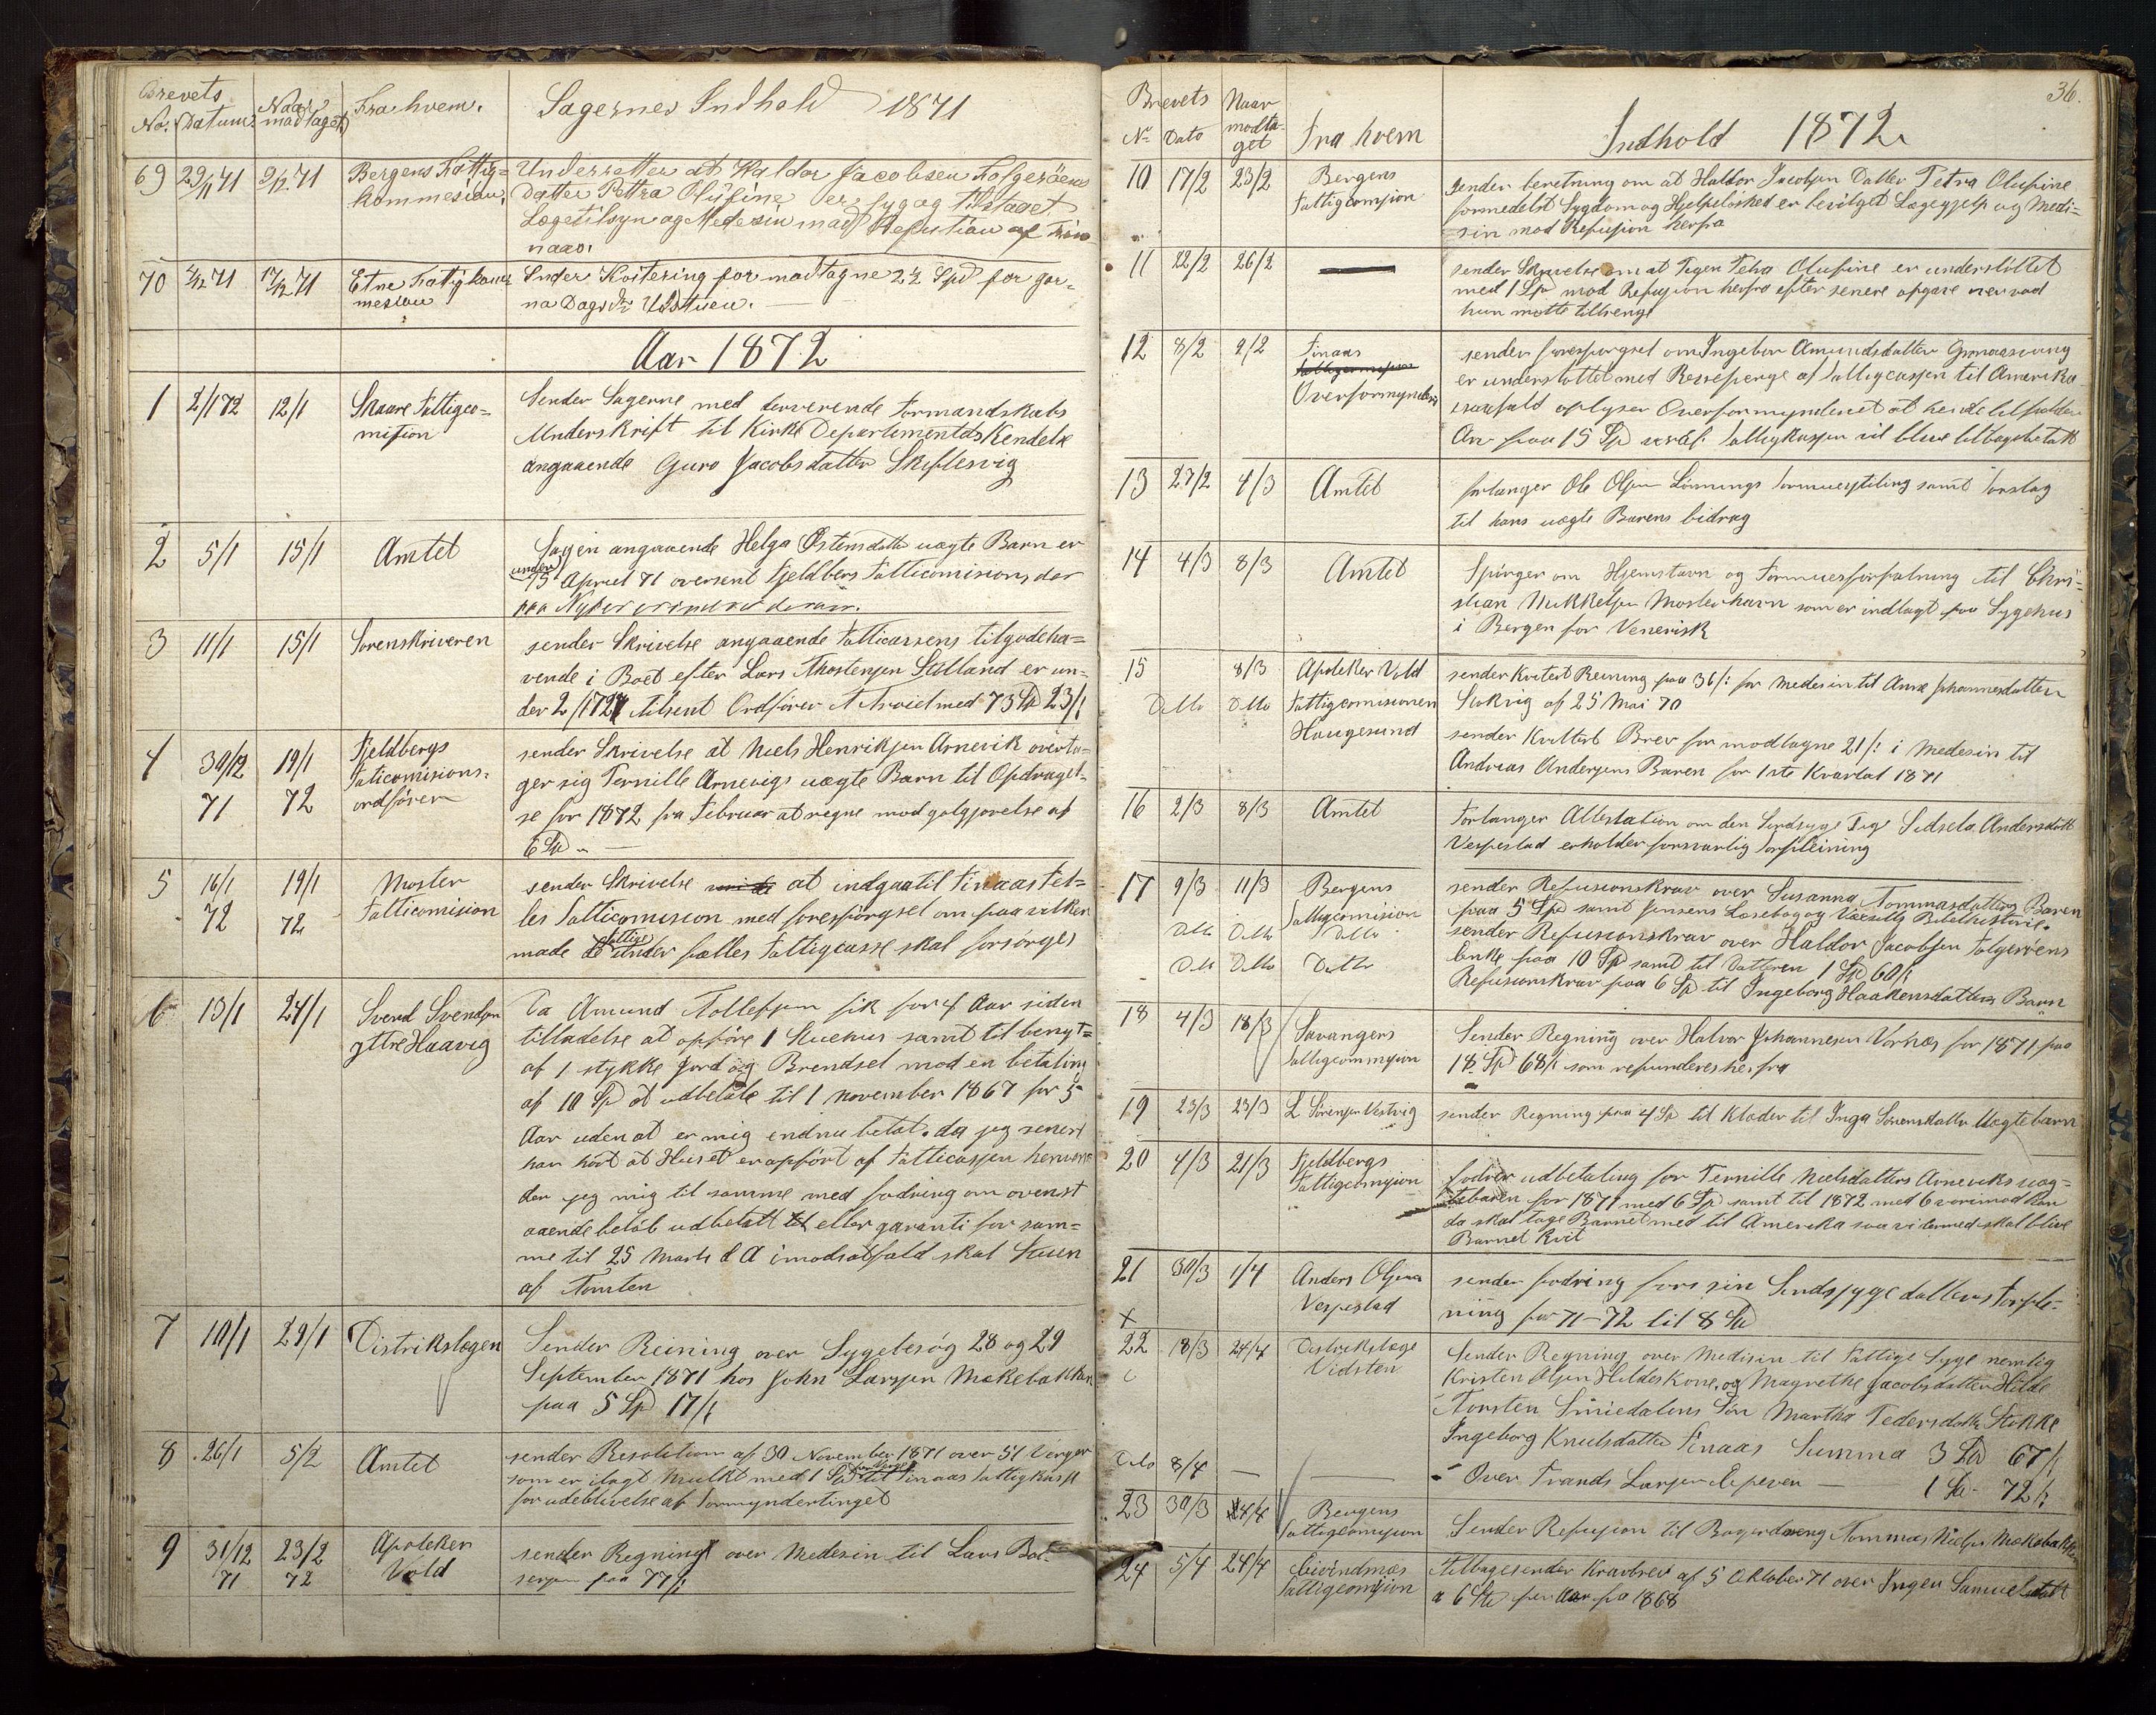 Brevets
No. Datum. Naar modtaget Fra hvem. Sagernes Indhold 1871
69 29/11 71 9/12 71 Bergens Fattig= Underretter at Haldor Jacobsen Folgerøens
kommesion, datter Pettra Olüfine er syg og tilstaaet
Lægetilsyn og Medesin mod Refustion af Fin=
naas.
70 4/12 71 17/12 71 Etne Fatigkom= Sender Kvitering for modtagne 2½ Spd for
mesion na Dags
Aar 1872
1 2/1 72 12/1 Skaare Fattigco= Sender Sagerne med derverende Formandskabs
mision Underskrift til Kirke Departementets Kendelse
angaaende Guro Jacobsdatter Skiflesvig
2 5/1 15/1 Amtet Sagen angaaende Helga Østensdatter uægte Barn er
under
15 Apriel 71 oversent Fjeldbers Fatticomisions der
paa Nyt
3 11/1 15/1 Sorenskriveren sender Skrivelse angaaende Fatticassens tilgodeha=
vende i Boet efter Lars Thostensen Sælland er un=
der 2/1 72 tilsent Ordfører med 73 Sp 23 /:
4 30/12 19/1 Fjeldbergs sender Skrivelse at Niels Henriksen Arnevik overta=
71 72 Faticomisions= ger sig Pernille Arnevigs uægte Barn til Opdraget=
ordfører se for 1872 fra Februar at regne mod gotgjørelse af
6 Sp
5 16/1 19/1 Moster sender Skrivelse at indgaa til Finaas Fel=
72 72 Fatticomision les Fatticomision med forespørgsel om paa vilken
fattige
made de under fælles Fattigcasse skal forsørges
6 13/1 24/1 Svend Svendsen Da Amund Tollefsen fik for 4 Aar siden
yttre Haavig tilladelse at opføre 1 Stuehus samt til benyt=
af 1 stykke Jord og Brendsel mod en betaling
af 10 Sp at udbetale til 1 november 1867 for 5
Aar uden at er mig endnu betat. da jeg senere
har hørt at Huset er opført af Fatticassen henven=
der jeg mig til samme med fodring om ovenst
aaende beløb udbetalt eller garanti for sam=
me til 25 Marts d A i modsatfald skal Stuen
af Tomten
7 10/1 29/1 Distrikslægen Sender Reining over Sygebesøg 28 og 29
September 1871 hos John Larsen Mækebakken
paa 5 Sp 17 /:
8 26/1 5/2 Amtet sender Resolution af 30 November 1871 over 51 Verger
per Verge
som er ilagt Mulkt med 1 Sp til Finaas Fattigkasse
for udeblivelse af Formyndertinget
9 31/12 23/2 Apoteker sender Regning over Medesin til Lars Bot=
71 72 Vold sersen paa 77 /:
36.
Brevets Naar
No Dato modta= Fra hvem Indhold 1872
get
10 17/2 23/2 Bergens sender beretning om at Haldor Jacobsen Datter Petra Olufine
Fattigcomision formedelst Sygdom og Hjelpeløshed er bevilget Lægegjelp og Medi=
sin mod Refusion herfra
11 22/2 26/2 sender Skrivelse om at Pigen Petra Olufine er understøttet
med 1 Sp mod Refusion herfra efter senere opgave mer vad
hun motte tiltrenge
12 8/2 9/2 Finaas sender forespørgsel om Ingebor Amundsdatter
Overformynderi er understøttet med Reisepenge af Fattigcassen til Amerika
isaafald oplyser Overformynderiet at hende tilfalden
Arv paa 15 Sp Fattigkassen vil blive tilbagebetalt
13 27/2 4/3 Amtet forlanger Ole Olsen Lønnings Formuestiling samt Forslag
til hans uægte Barens bidrag
14 4/3 8/3 Amtet Spørger om Hjemstavn og Formuesforfatning til Chri=
stian Mikkelsen Mosterhavn som er indlagt paa Sygehus
i Bergen for Venerisk
15 8/3 Apoteker Vold sender kvitert Reining paa 36 /: for Medesin til Ane Johannesdatter
Ditto Ditto Fattigcomisionen Stokvig af 25 Mai 70
Haugesund sender Kvittert Brev for modtagne 21 /: i Medesin til
Andreas Andersens Baren for 1ste Kvartal 1871
16 2/3 8/3 Amtet Forlanger Attestation om den Sindsyge Pige Sidsela Andersdatt
Vespestad erholder forsvarlig Forpleining
17 9/3 11/3 Bergens sender Refusionskrav over Susanna Tommasdatters Baren
Fattigcomision paa 5 Sp samt Jensens Læsebog og Vogts Bibelhistorie.
Ditto Ditto Ditto sender Refusionskrav over Haldor Jacobsen Folgerøens
Enke paa 10 Sp samt til Datteren 1 Sp 60 /:
Ditto Ditto Ditto Refusionskrav paa 6 Sp til Ingeborg Haakensdatters Barn
18 4/3 18/3 Savangers Sender Regning over Halvor Johannesen Vornæs for 1871 paa
Fattigcommision 18 Sp 68 /: som refunderes herfra
19 23/3 23/3 L Sørensen Vestvig sender Regning paa 4 Sp til Klæder til Inga Sørensdatter Uægtebarn
20 4/3 21/3 Fjeldbergs fodrer udbetaling for Pernille Nielsdatters Arneviks uæg=
Fattigcomision tebaren for 1871 med 6 Sp samt til 1872 med 6 vorimod han
da skal tage Barnet med til Amerika saa vi dermed skal blive
Barnet kvit
21 30/3 1/4 Anders Olsen sender fodring for sin Sindssyge datters Forple=
x Vespestad ning for 71-72 til 8 Sp
22 18/3 24/4 Distrikslæge Sender Regning over Medisin til Fattige Syge nemlig
Vidsten Kristen Olsen Hildes Kone, og Magrethe Jacobsdatter Hilde
Torsten Smiedalens Søn Martha Pedersdatte Stokke
Ingeborg Knutsdatter Finaas Summa 3 Sp 67 /:
Dito 8/4 Over Trands Larsen Epeven 1 Sp 72 /:
23 30/3 24/4 Bergens Sender Refusion til Tommas Nielsen Mækebakken
Fattigcomision
24 5/4 24/4 Eivindnæs Tilbagesender Kravbrev af 5 Oktober 71 over Inger Samuelsdatt
Fattigcomision a 6 Sp per Aar fra 1868